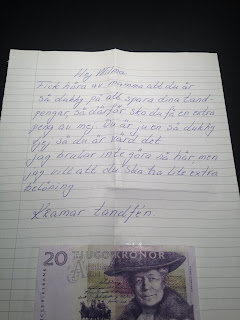 Hej Wilma.
Fick höra av mamma att du är
så duktig på att spara dina tand-
pengar, så därför ska du få en extra
peng av mej. Du är ju en så duktig
tjej så du är värd det
jag brukar inte göra så här, men
jag vill att du ska ha lite extra
belöning
Kramar tandfén.
20 TJUGO KRONOR